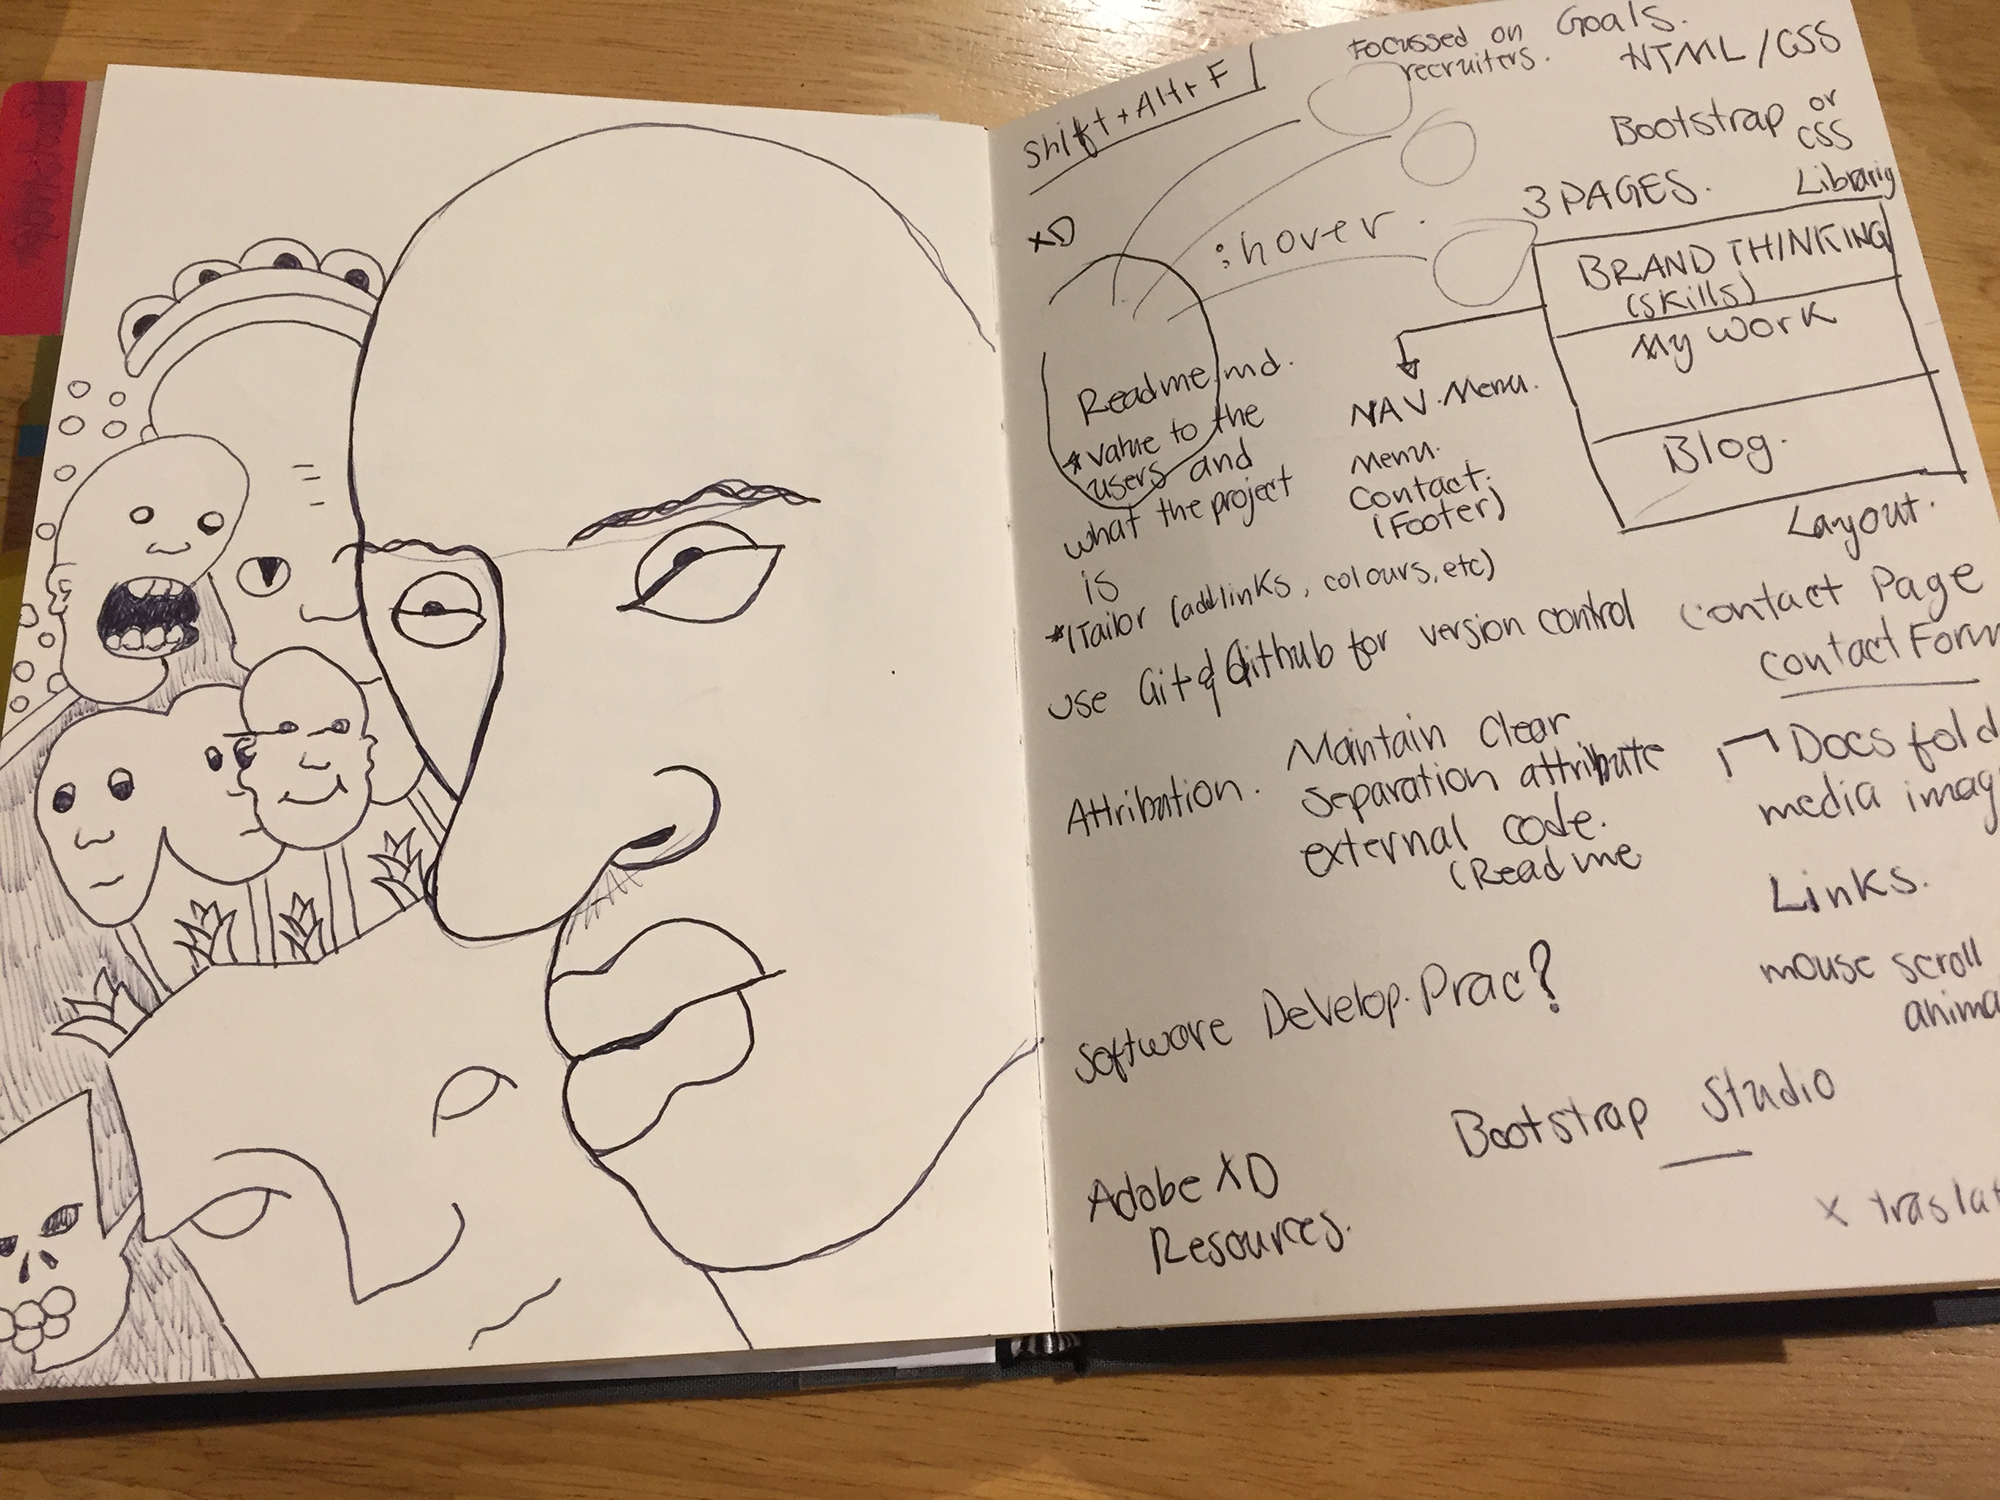 Shift+Alt+F
Focussed on
recruiters.
Goals.
HTML/CSS
Bootstrap or
CSS
Library
3 PAGES.
XD
:hover.
BRAND THINKING
(skills)
My work
Blog.
Layout.
Readme.md.
*value to the
users and
what the project
is
*(Tailor (add links, colours, etc)
NAV. Menu.
Menu.
Contact.
(Footer)
use Git & Github for version control
Contact Page
contact Form
Attribution.
Maintain clear
separation attribute
external code.
(Readme
Docs fold
media imag
Links.
mouse scroll
anima
Software Develop. Prac?
Bootstrap Studio
Adobe XD
Resources.
x traslat